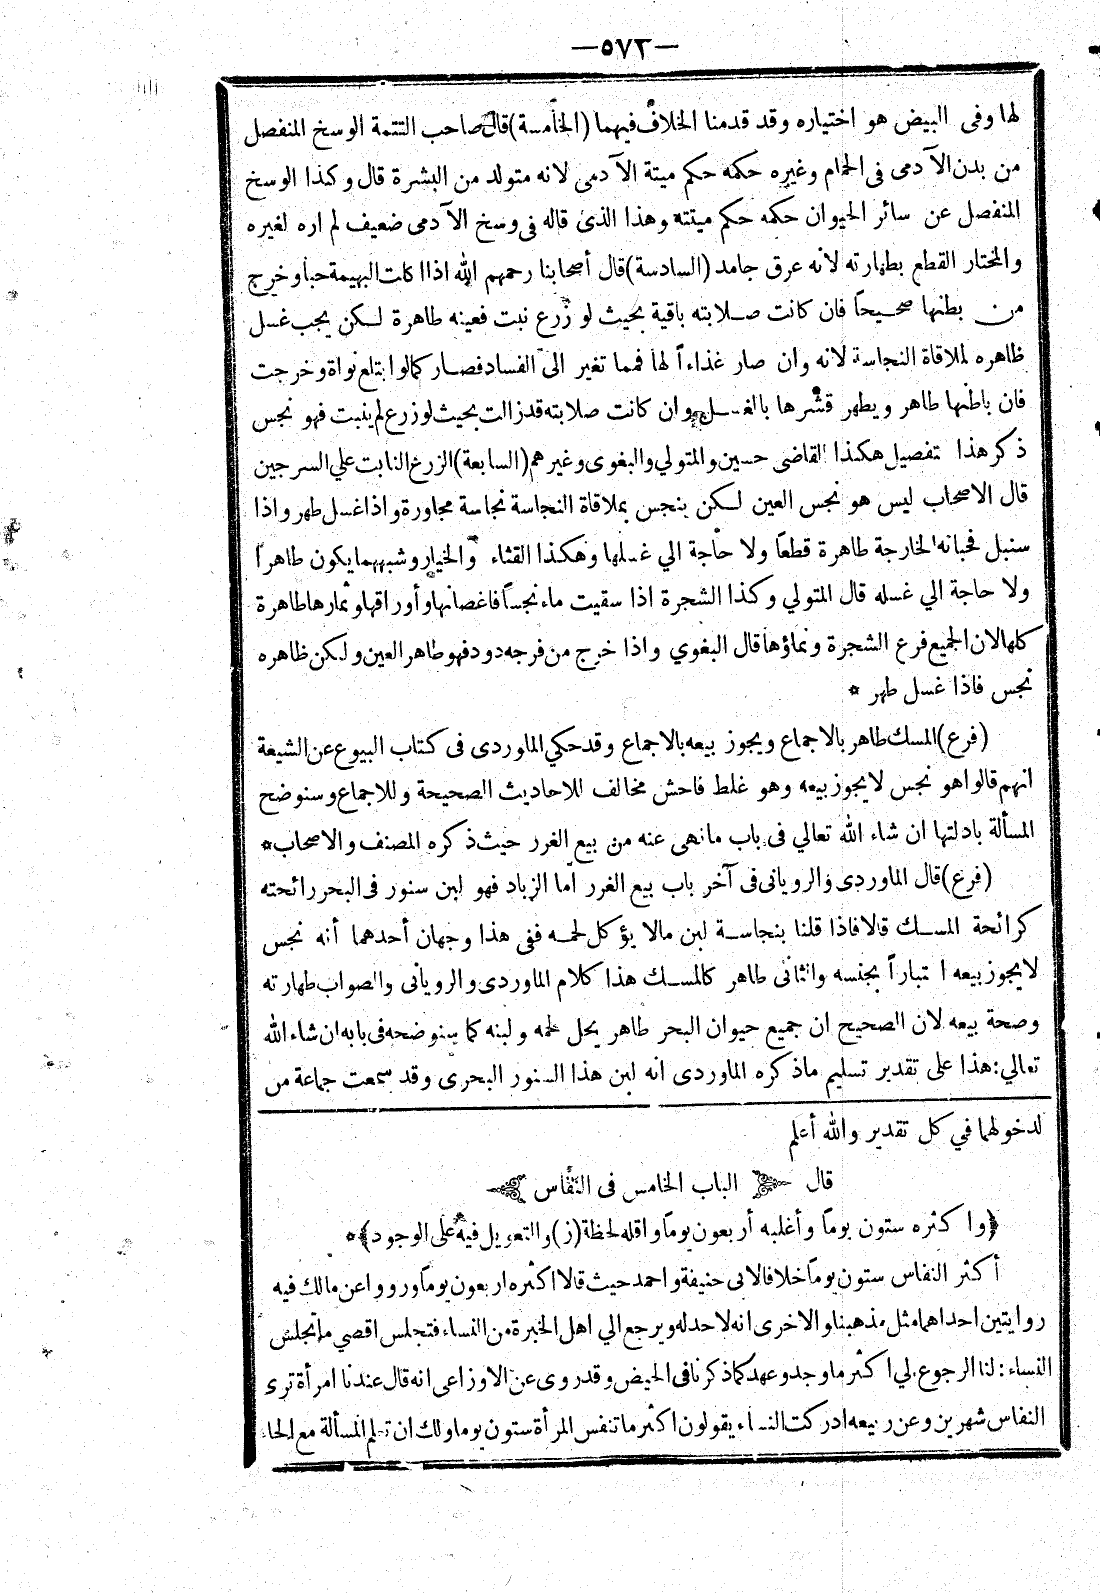 —٥٧٣—
لها وفى البيض هو اختياره وقد قدمنا الخلاف فيهما (الخامسة) قال صاحب التتمة الوسخ المنفصل
من بدن الآدمى فى الحمام وغيره حكمه حكم ميتة الآدمى لانه متولد من البشرة قال وكذا الوسخ
المنفصل عن سائر الحيوان حكمه حكم ميتته وهذا الذى قاله فى وسخ الآدمى ضعيف لم اره لغيره
والمختار القطع بطهارته لأنه عرق جامد (السادسة) قال أصحابنا رحمهم الله اذا اكلت البهيمة حبا وخرج
من بطنها صحيحاً فان كانت صلابته باقية بحيث لو زرع نبت فعينه طاهرة لكن يجب غسل
ظاهره لملاقاة النجاسة لانه وان صار غذاءاً لها فمما تغير الى الفساد فصار كما لو ابتلع نواة وخرجت
فان باطنها طاهر ويطهر قشرها بالغسل وان كانت صلابته قد زالت بحيث لو زرع لم ينبت فهو نجس
ذكر هذا تفصيل هكذا القاضى حسين والمتولي والبغوى وغيرهم (السابعة) الزرع النابت علي السرجين
قال الاصحاب ليس هو نجس العين لكن ينجس بملاقاة النجاسة نجاسة مجاورة واذا غسل طهر واذا
سنبل فحباته الخارجة طاهرة قطعاً ولا حاجة الي غسلها وهكذا القثاء والخيار وشبههما يكون طاهراً
ولا حاجة الي غسله قال المتولي وكذا الشجرة اذا سقيت ماء نجسا فاغصانها وأوراقها وثمارها طاهرة
كلها لان الجميع فرع الشجرة ونماؤها قال البغوي واذا خرج من فرجه دود فهو طاهر العين ولكن ظاهره
نجس فاذا غسل طهر *
(فرع) المسك طاهر بالاجماع ويجوز بيعه بالاجماع وقد حكي الماوردى فى كتاب البيوع عن الشيعة
انهم قالوا هو نجس لا يجوز بيعه وهو غلط فاحش مخالف للاحاديث الصحيحة وللاجماع وسنوضح
المسألة بادلتها ان شاء الله تعالي فى باب ما نهى عنه من بيع الغرر حيث ذكره المصنف والاصحاب *
(فرع) قال الماوردى والرويانى فى آخر باب بيع الغرر اما الزباد فهو لبن سنور فى البحر رائحته
كرائحة المسك قالا فاذا قلنا بنجاسة لبن مالا يؤكل لحمه ففى هذا وجهان أحدهما أنه نجس
لا يجوز بيعه اعتباراً بجنسه والثانى طاهر كالمسك هذا كلام الماوردى والرويانى والصواب طهارته
وصحة بيعه لان الصحيح ان جميع حيوان البحر طاهر يحل لحمه ولبنه كما سنوضحه فى بابه ان شاء الله
تعالي: هذا على تقدير تسليم ما ذكره الماوردى انه لبن هذا السنور البحرى وقد سمعت جماعة من
لدخولهما في كل تقدير والله أعلم
قال الباب الخامس فى النفاس
﴿وا كثره ستون يوماً وأغلبه أربعون يوماً واقله لحظة (ز) والتعويل فيه على الوجود﴾*
أكثر النفاس ستون يوماً خلافا لابى حنيفة واحمد حيث قالا اكثره اربعون يوماً ورووا عن مالك فيه
روايتين احداهما مثل مذهبنا والاخرى انه لا حد له ويرجع الي اهل الخبرة من النساء فتجلس اقصي ما تجلس
النساء: لنا الرجوع الي اكثر ما وجد وعهد كما ذكرنا فى الحيض وقد روى عن الاوزاعى انه قال عندنا امرأة ترى
النفاس شهرين وعن ربيعه ادركت النساء يقولون اكثر ما تنفس المرأة ستون يوما ولك ان تعلم المسألة مع